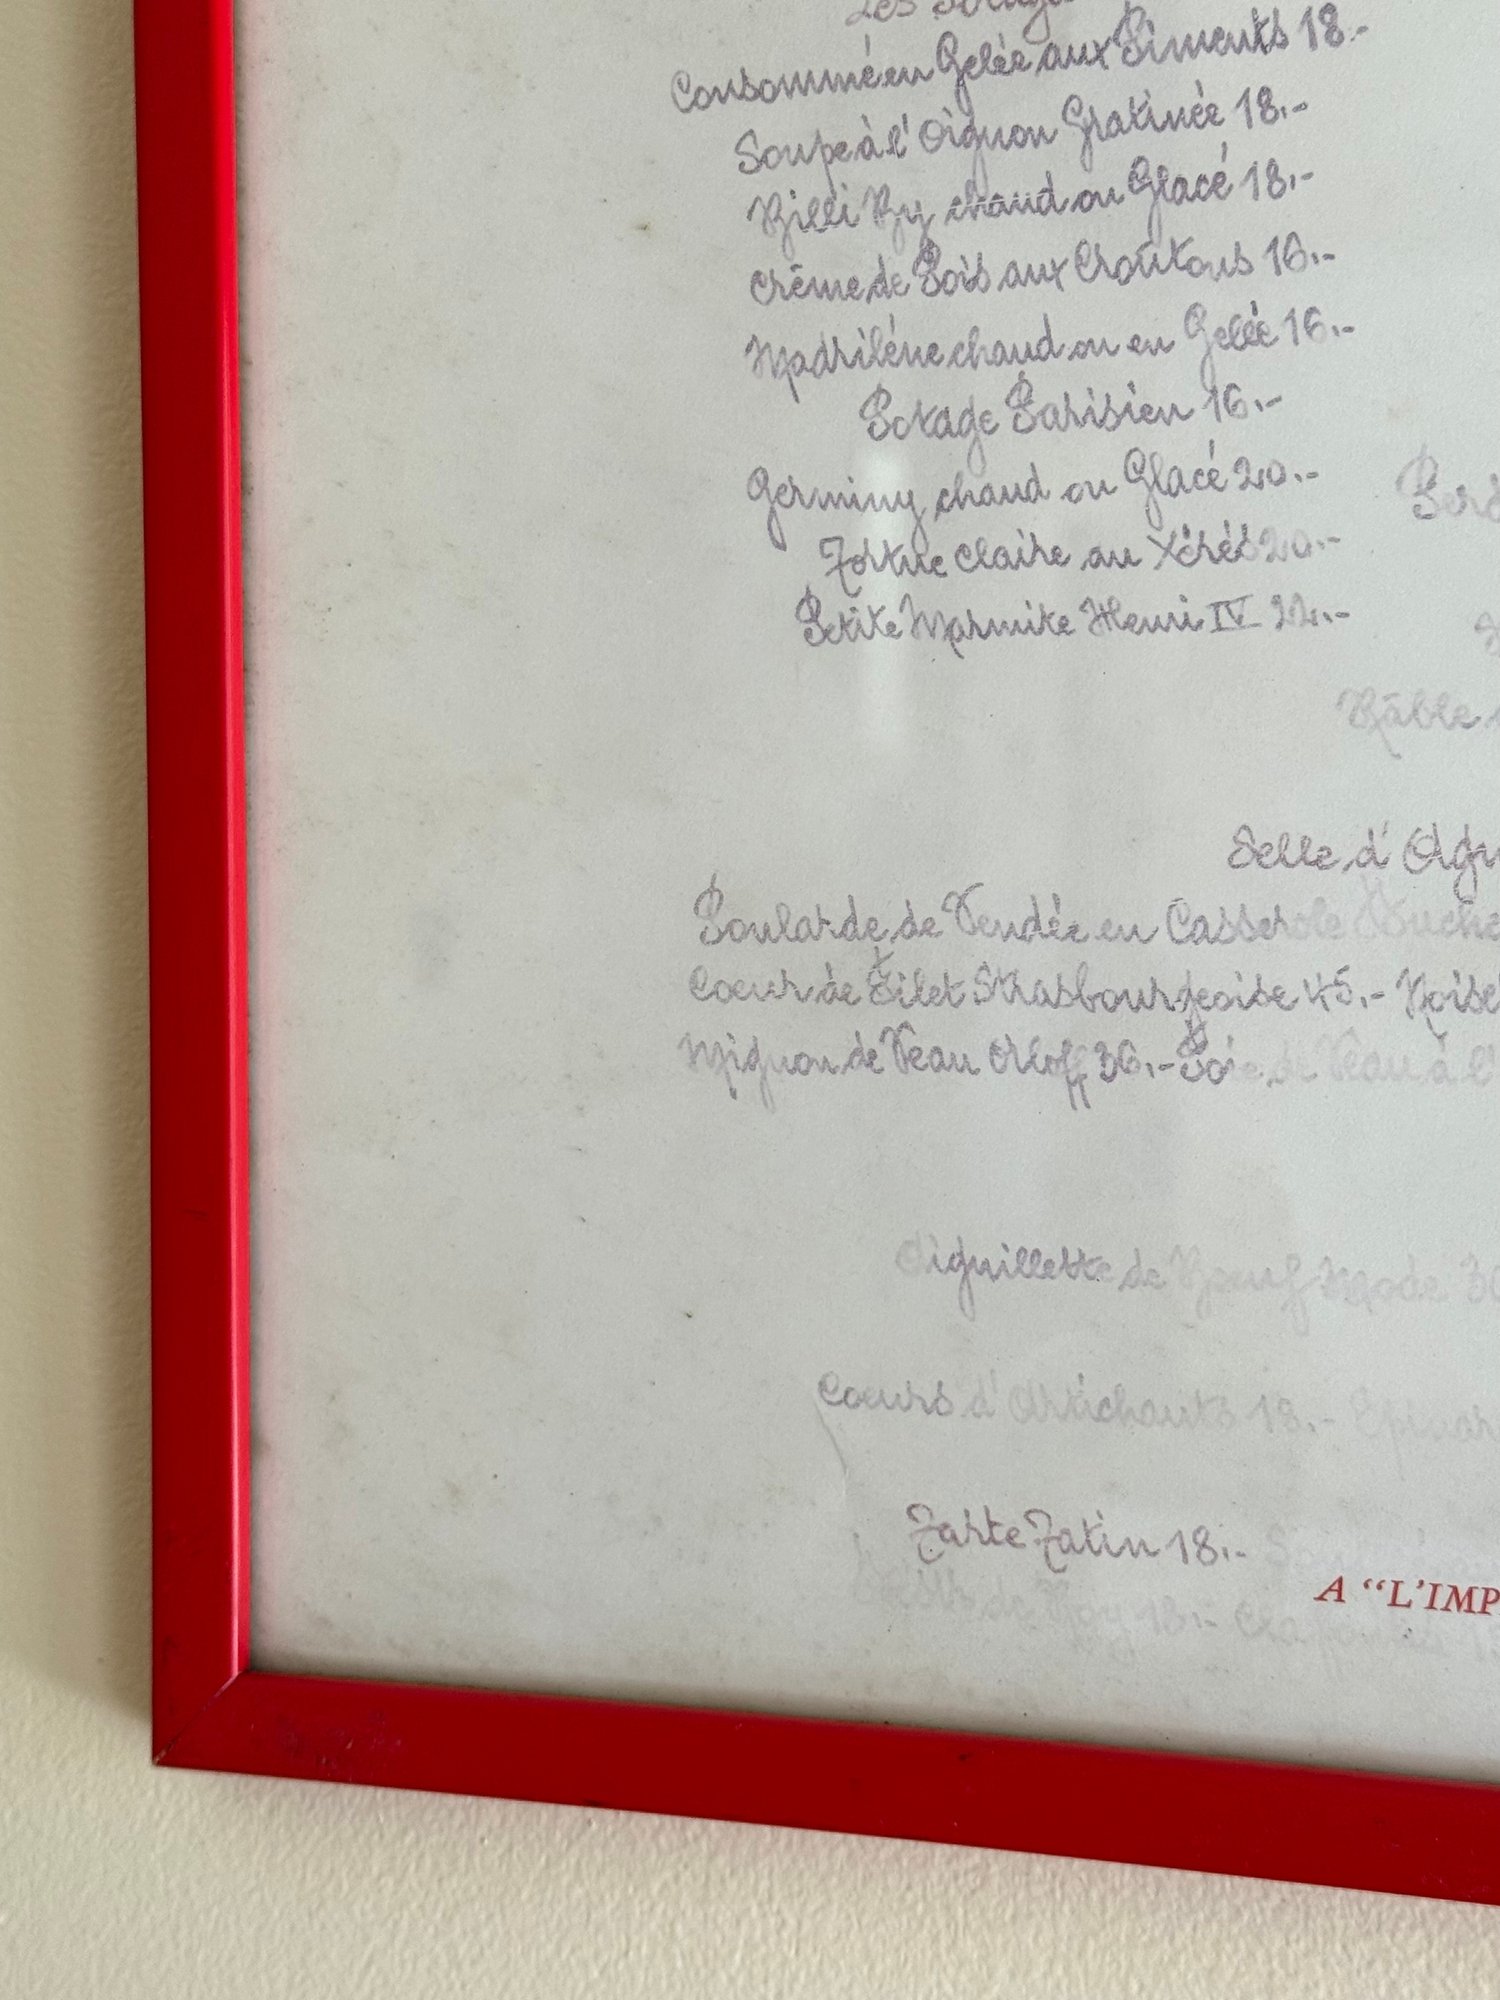 Les
Consommé en Gelée aux Piments 18.-
Soupe à l'Oignon Gratinée 18.-
Billi By chaud ou Glacé 18.-
Crème de Pois aux Croûtons 16.-
Madrilène chaud ou en Gelée 16.-
Potage Parisien 16.-
Germiny chaud ou Glacé 20.-
Tortue claire au Xérès 20.-
Petite Marmite Henri IV 22.-
Râble
Selle d'Agn
Poularde de Vendée en Casserole
Coeur de Filet Strasbourgeoise 45.- Noise
Mignon de Veau Orloff 36.- Foie de Veau à l'
Aiguillette de Boeuf Mode 30
Coeurs d'Artichauts 18.- Epinar
Tarte Tatin 18.-
A “L'IMP